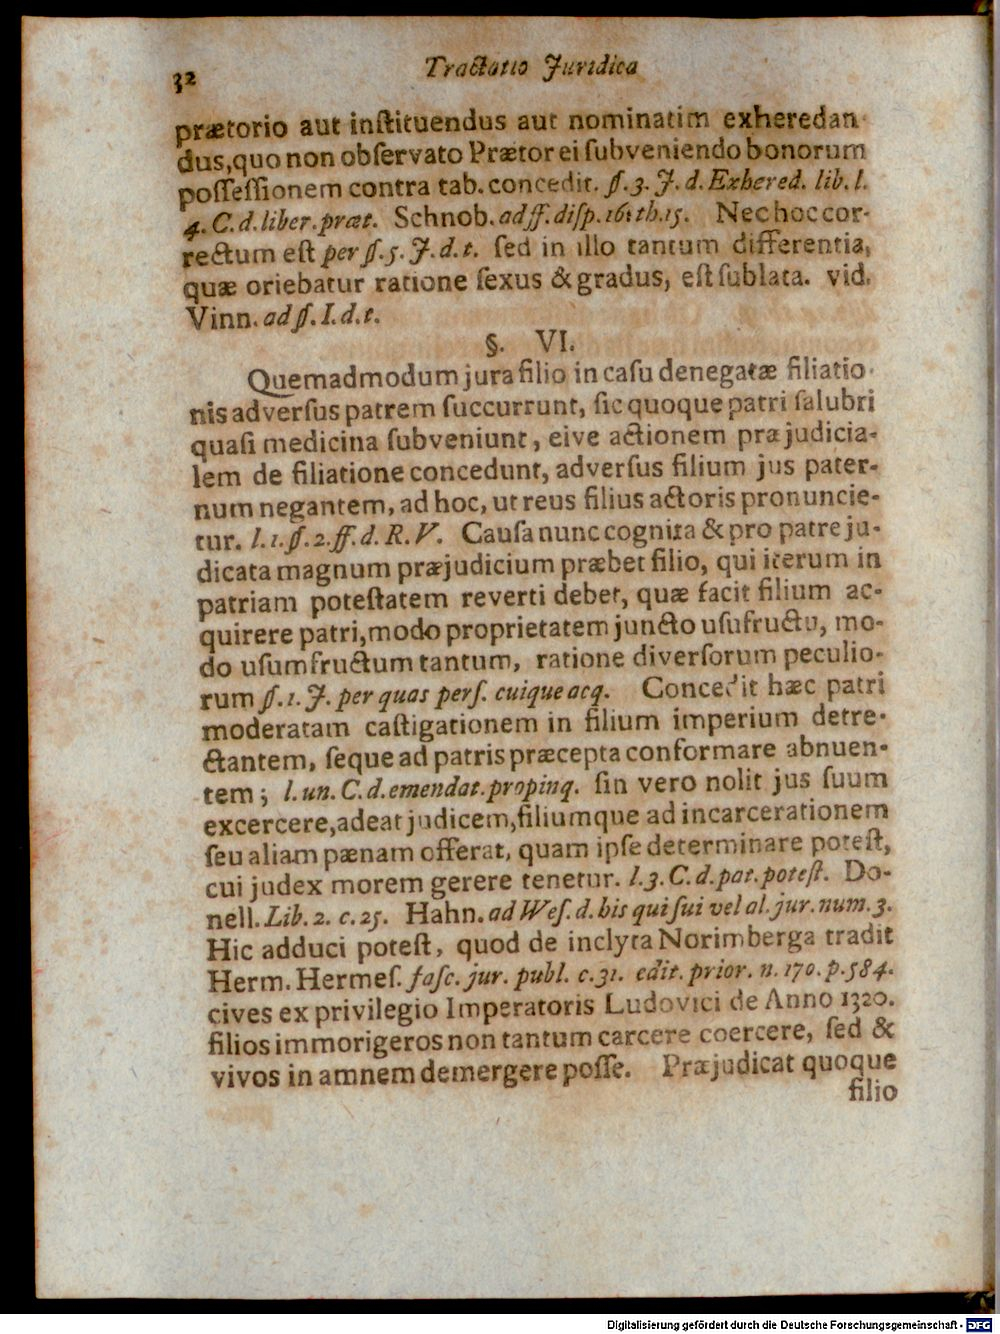 32 Tractatio Juridica
prætorio aut inſtituendus aut nominatim exheredan-
dus, quo non obſervato Prætor ei ſubveniendo bonorum
poſſeſſionem contra tab. concedit. ſ. 3. J. d. Exhered. lib. l.
4. C. d. liber. præt. Schnob. ad ff. diſp. 16. th. 15. Nec hoc cor-
rectum eſt per ſ. 5. J. d. t. ſed in illo tantum differentia,
quæ oriebatur ratione ſexus & gradus, eſt ſublata. vid.
Vinn. ad ſ. I. d. t.
§. VI.
Quemadmodum jura filio in caſu denegatæ filiatio-
nis adverſus patrem ſuccurrunt, ſic quoque patri ſalubri
quaſi medicina ſubveniunt, eive actionem præjudicia-
lem de filiatione concedunt, adverſus filium jus pater-
num negantem, ad hoc, ut reus filius actoris pronuncie-
tur. l. 1. ſ. 2. ff. d. R. V. Cauſa nunc cognita & pro patre ju-
dicata magnum præjudicium præbet filio, qui iterum in
patriam poteſtatem reverti debet, quæ facit filium ac-
quirere patri, modo proprietatem juncto uſufructu, mo-
do uſumfructum tantum, ratione diverſorum peculio-
rum ſ. 1. J. per quas perſ. cuique acq. Concedit hæc patri
moderatam caſtigationem in filium imperium detre-
ctantem, ſeque ad patris præcepta conformare abnuen-
tem; l. un. C. d. emendat. propinq. ſin vero nolit jus ſuum
excercere, adeat judicem, filiumque ad incarcerationem
ſeu aliam pænam offerat, quam ipſe determinare poteſt,
cui judex morem gerere tenetur. l. 3. C. d. pat. poteſt. Do-
nell. Lib. 2. c. 25. Hahn. ad Weſ. d. his qui ſui vel al. jur. num. 3.
Hic adduci poteſt, quod de inclyta Norimberga tradit
Herm. Hermeſ. faſc. jur. publ. c. 31. edit. prior. n. 170. p. 584.
cives ex privilegio Imperatoris Ludovici de Anno 1320.
filios immorigeros non tantum carcere coercere, ſed &
vivos in amnem demergere poſſe. Præjudicat quoque
filio
Digitalisierung gefördert durch die Deutsche Forschungsgemeinschaft - DFG